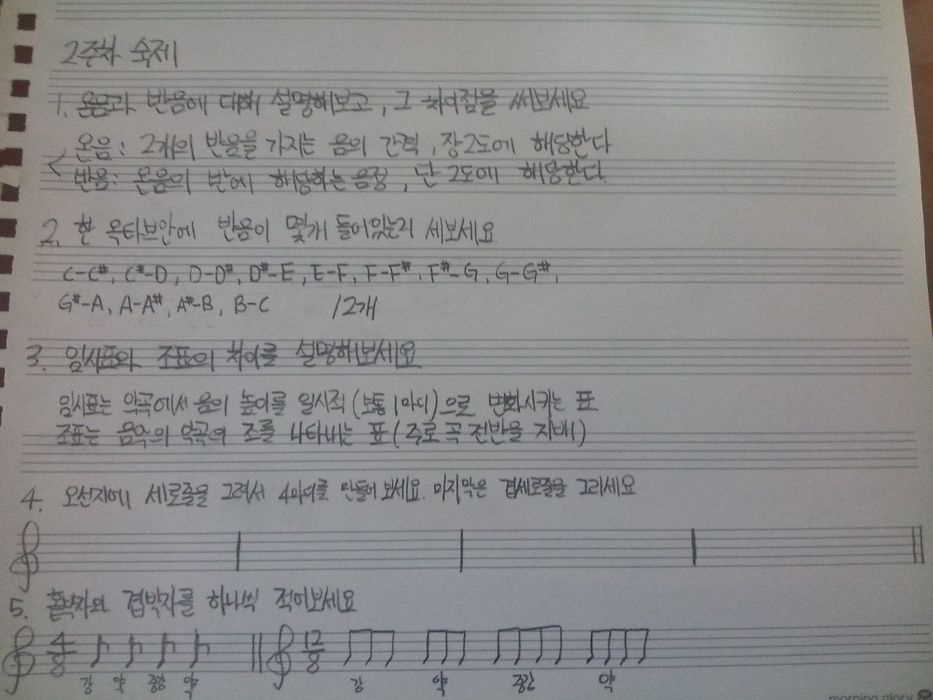 2주차 숙제
1. 온음과 반음에 대해 설명해보고, 그 차이점을 써보세요
온음: 2개의 반음을 가지는 음의 간격, 장2도에 해당한다
반음: 온음의 반에 해당하는 음정, 단 2도에 해당한다.
2. 한 옥타브안에 반음이 몇개 들어있는지 세보세요
C-C#, C#-D, D-D#, D#-E, E-F, F-F#, F#-G, G-G#,
G#-A, A-A#, A#-B, B-C 12개
3. 임시표와 조표의 차이를 설명해보세요
임시표는 악곡에서 음의 높이를 일시적 (보통 1마디)으로 변화시키는 표
조표는 음악의 악곡의 조를 나타내는 표 (주로 곡 전반을 지배)
4. 오선지에 세로줄을 그려서 4마디를 만들어 보세요. 마지막은 겹세로줄을 그리세요
5. 홑박자와 겹박자를 하나씩 적어보세요
4/8 12/8
강 약 중강 약 강 약 중강 약
morning glory